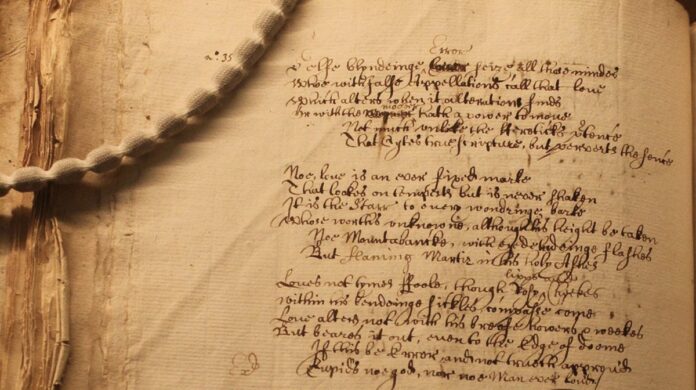 n°: 35
Error
Selfe blyndeinge seize all those mindes
Who with false Appellations call that love
Which alters when it alterations finds
moover
Or with the hath a power to moove
Not much unlike the Hereticks p'tence
That Cytes true scripture, but perverts the sence
Noe, love is an ever fixed marke
That lookes on tempests but is never shaken
It is the Starr to every wondringe barke
Whose worth's unknowne, although his height be taken
Noe Mountabancke, with eye deludeinge flashes
But flaming Martir in his holy Ashes
lipps and
Loves not tymes Foole, though Rosy Cheekes
within his bendeinge sickles compasse come
Love alters not, with his breefe howers & weekes
But beares it out, even to the Edge of doome
If this be Error and not truth approved
Cupids noe god, nor noe Man ever loved